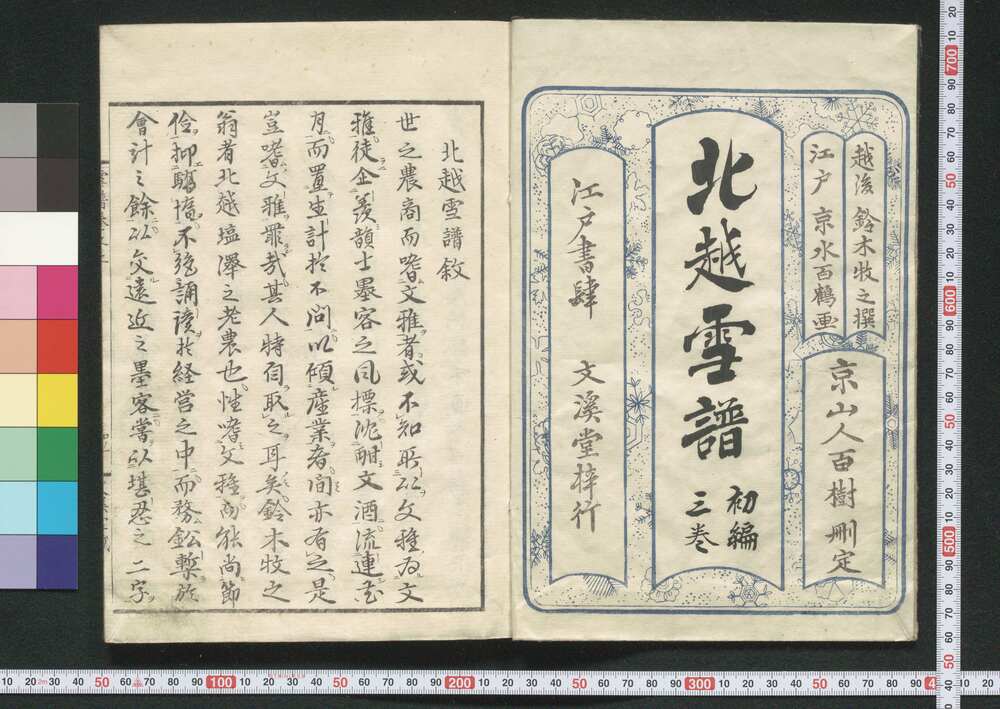 越後 鈴木牧之撰
江戸 京水百鶴画
京山人百樹刪定
北越雪譜
初編
三巻
江戸書肆 文溪堂梓行
北越雪譜敘
世之農商而嗜文雅者或不知所以文雅為文
雅徒企羨韻士墨客之風標沈酣文酒流連花
月而置生計於不問以傾産業者間亦有之是
豈嗜文雅罪哉其人特自取之耳矣鈴木牧之
翁者北越塩澤之老農也性嗜文雅而能尚節
儉抑驕惰不絶誦読於経営之中而務鉛槧於
會計之餘以交遠近之墨客嘗以堪忍之二字